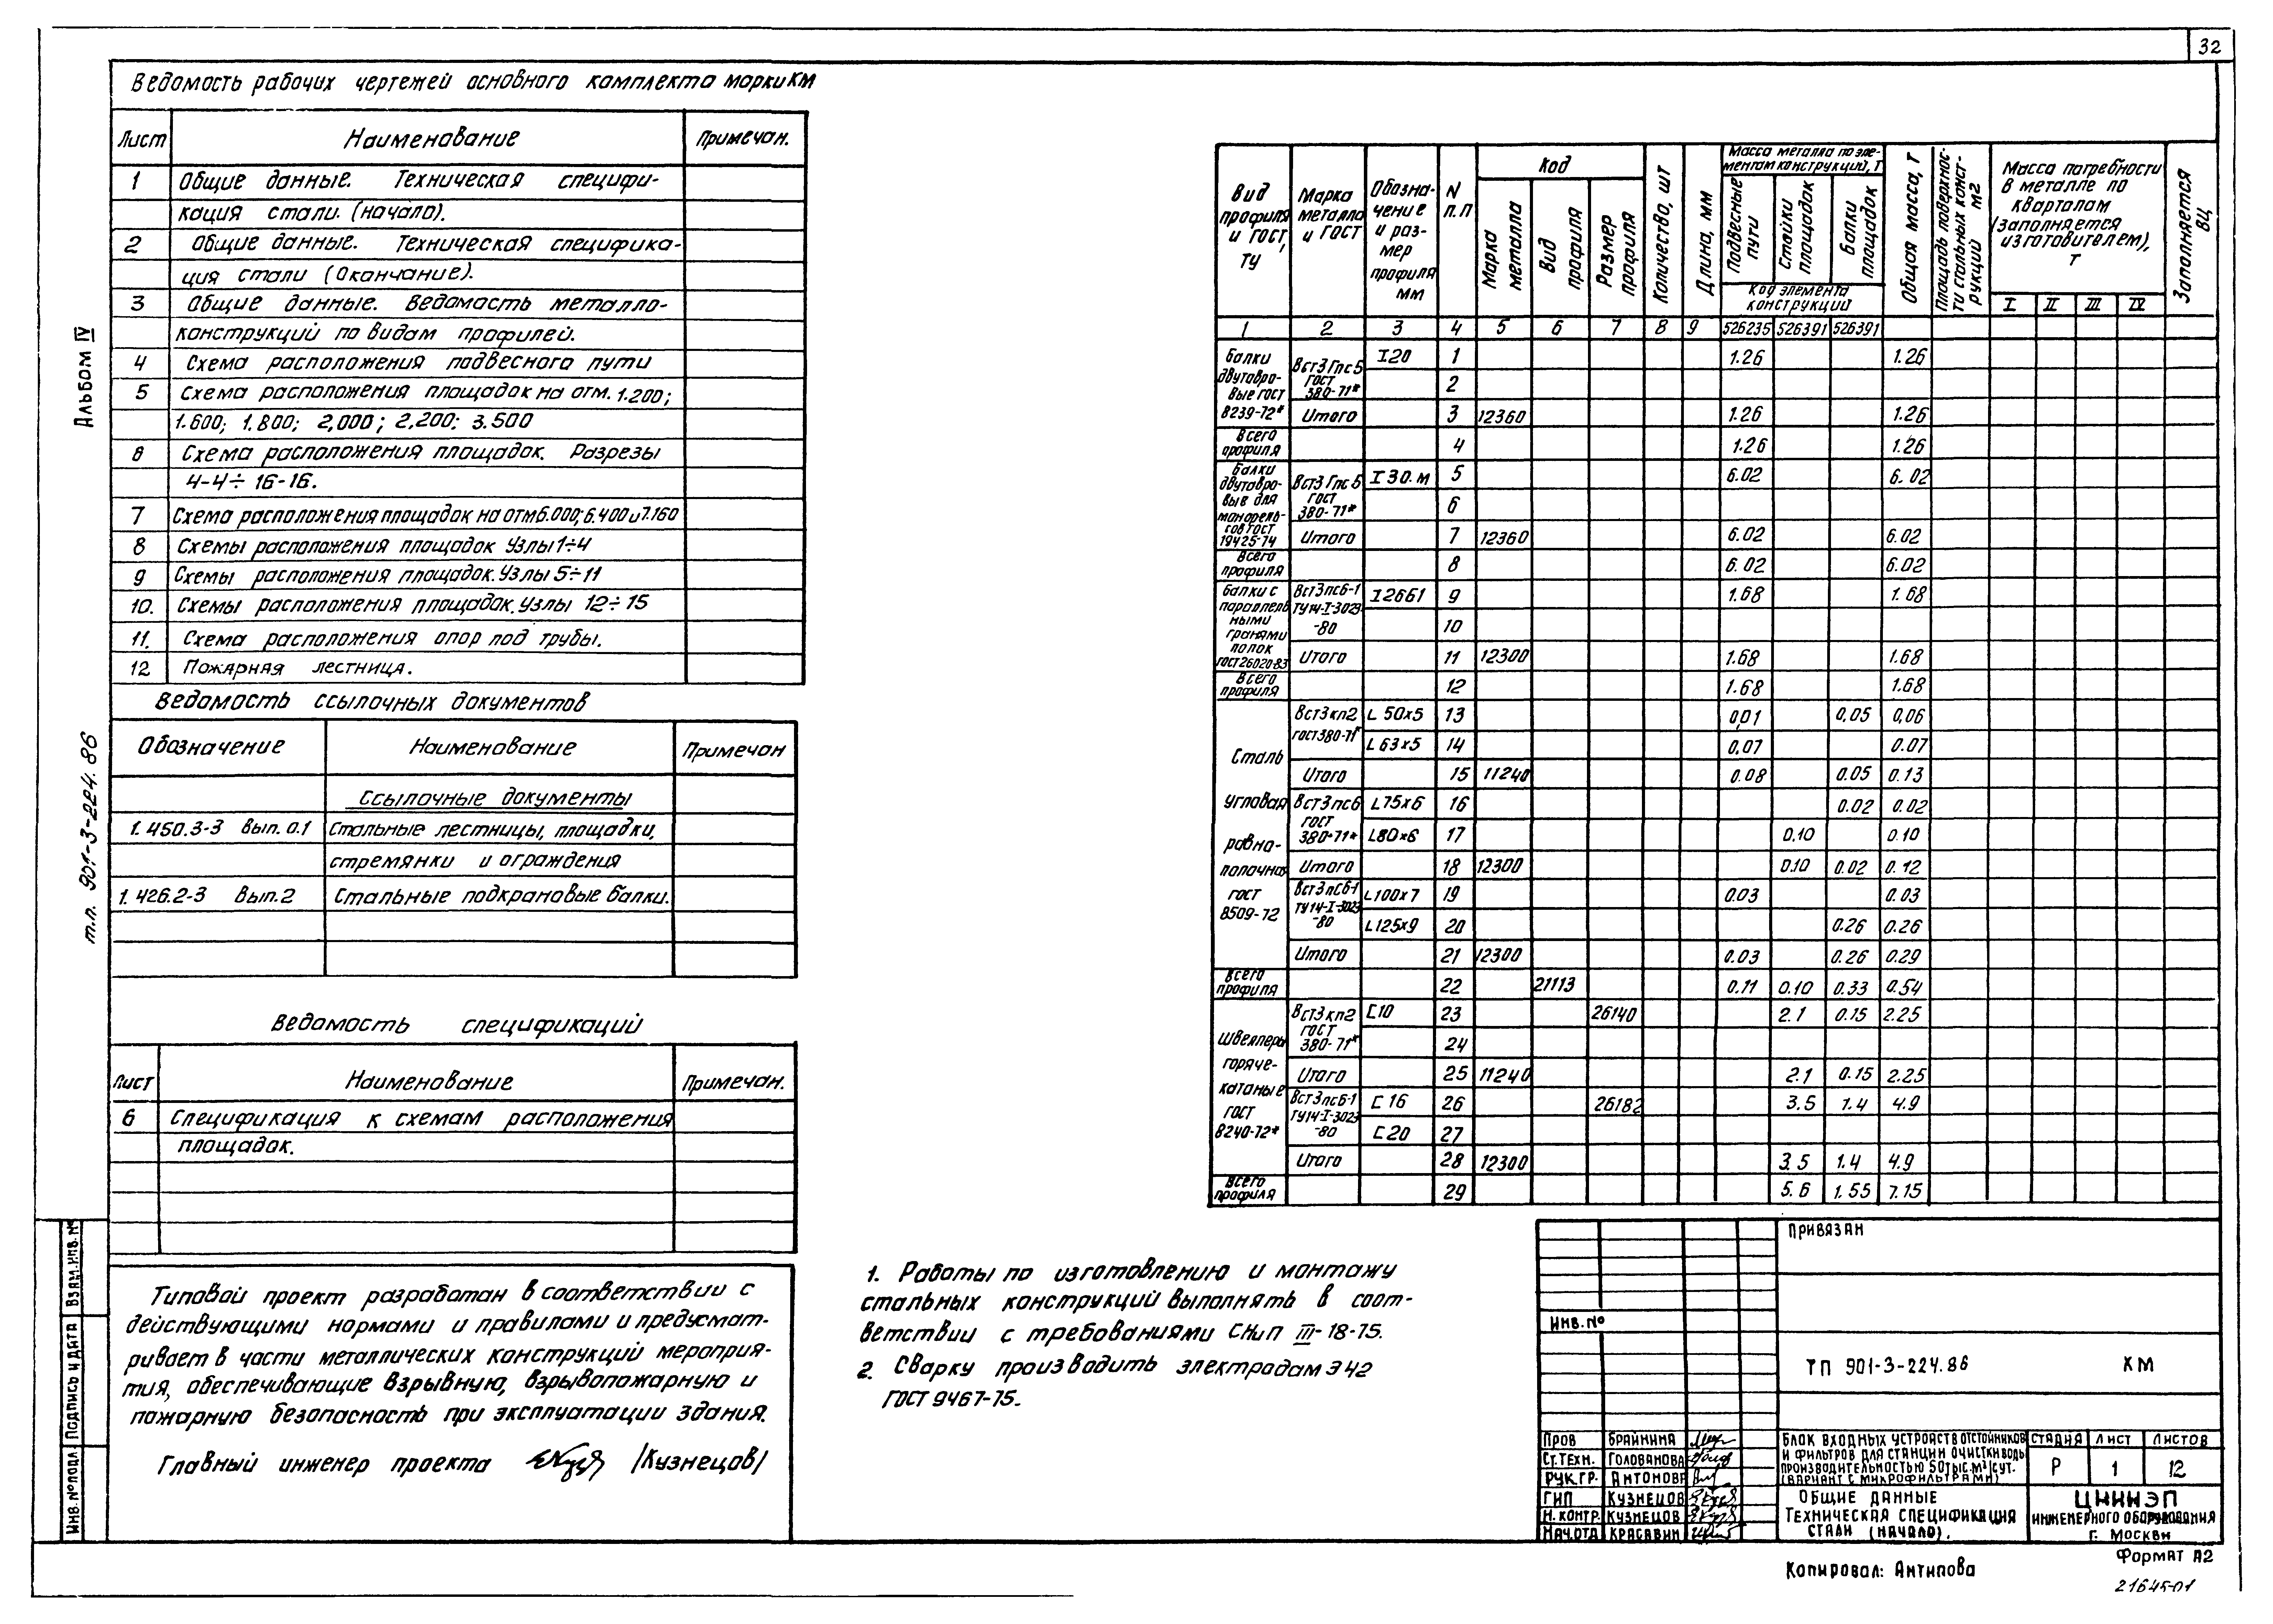 32
Ведомость рабочих чертежей основного комплекта марки КМ
Лист Наименование Примечан.
1 Общие данные. Техническая специфи-
кация стали. (начало).
2 Общие данные. Техническая специфика-
ция стали (окончание).
3 Общие данные. Ведомость металло-
конструкций по видам профилей.
4 Схема расположения подвесного пути
5 Схема расположения площадок на отм. 1.200;
1.600; 1.800; 2,000; 2,200; 3.500
6 Схема расположения площадок. Разрезы
4-4÷16-16.
7 Схема расположения площадок на отм 6.000; 6.400 и 7.160
8 Схемы расположения площадок Узлы 1÷4
9 Схемы расположения площадок. Узлы 5÷11
10. Схемы расположения площадок. Узлы 12÷15
11. Схема расположения опор под трубы.
12 Пожарная лестница.
Ведомость ссылочных документов
Обозначение Наименование Примечан
Ссылочные документы
1.450.3-3 Вып. 0.1 Стальные лестницы, площадки,
стремянки и ограждения
1.426.2-3 Вып. 2 Стальные подкрановые балки.
Ведомость спецификаций
Лист Наименование Примечан.
6 Спецификация к схемам расположения
площадок.
Типовой проект разработан в соответствии с
действующими нормами и правилами и предусмат-
ривает в части металлических конструкций мероприя-
тия, обеспечивающие взрывную, взрывопожарную и
пожарную безопасность при эксплуатации здания.
Главный инженер проекта /Кузнецов/
Альбом IV
т.п. 901-3-224.86
Взам.инв.№
Подпись и дата
Инв.№подл.
1. Работы по изготовлению и монтажу
стальных конструкций выполнять в соот-
ветствии с требованиями СНиП III-18-75.
2. Сварку производить электродам Э42
ГОСТ 9467-75.
Вид профиля и ГОСТ, ТУ
Марка металла и ГОСТ
Обозна-
чение и раз-
мер профиля мм
N п.п
Код
Марка металла
Вид профиля
Размер профиля
Количество, шт
Длина, мм
Масса металла по эле-
ментам конструкций, Т
Подвесные пути
Стойки площадок
Балки площадок
Код элемента конструкций
Общая масса, Т
Площадь поверхнос-
ти стальных конст-
рукций м2
Масса потребности
в металле по
кварталам
(заполняется
изготовителем),
Т
I II III IV
Заполняется ВЦ
1 2 3 4 5 6 7 8 9 526235 526391 526391
Балки двутавро-
вые гост 8239-72*
Вст3Гпс5 ГОСТ 380-71*
I20 1 1.26 1.26
2
Итого 3 12360 1.26 1.26
Всего профиля 4 1.26 1.26
Балки двутавро-
вые для монорель-
сов ГОСТ 19425-74
Вст3Гпс5 ГОСТ 380-71*
I30.М 5 6.02 6.02
6
Итого 7 12360 6.02 6.02
Всего профиля 8 6.02 6.02
Балки с параллель
ными гранями полок ГОСТ 26020-83
Вст3пс6-1 ТУ14-I-3023-80
I26Б1 9 1.68 1.68
10
Итого 11 12300 1.68 1.68
Всего профиля 12 1.68 1.68
Сталь угловая равно-
полочная ГОСТ 8509-72
Вст3кп2 ГОСТ380-71*
L 50x5 13 0,01 0,05 0,06
L 63x5 14 0,07 0.07
Итого 15 11240 0.08 0.05 0.13
Вст3пс6 ГОСТ 380-71*
L75x6 16 0.02 0.02
L80x6 17 0,10 0.10
Итого 18 12300 0.10 0.02 0.12
Вст3пс6-1 ТУ14-I-3023-80
L100x7 19 0.03 0.03
L125x9 20 0.26 0.26
Итого 21 12300 0.03 0.26 0.29
Всего профиля 22 21113 0.11 0.10 0.33 0.54
Швеллеры горяче-
катаные ГОСТ 8240-72*
Вст3кп2 ГОСТ 380-71*
[10 23 26140 2.1 0.15 2.25
24
Итого 25 11240 2.1 0.15 2.25
Вст3пс6-1 ТУ14-I-3023-80
[16 26 26182 3.5 1.4 4.9
[20 27
Итого 28 12300 3.5 1.4 4.9
Всего профиля 29 5.6 1.55 7.15
Привязан
Инв.№
ТП 901-3-224.86 КМ
Пров Брайнина
Ст.техн. Голованова
Рук.гр. Антонова
ГИП Кузнецов
Н.контр. Кузнецов
Нач.отд Красавин
Блок входных устройств отстойников
и фильтров для станции очистки воды
производительностью 50 тыс. м³/сут.
(вариант с микрофильтрами)
Стадия Лист Листов
Р 1 12
Общие данные
Техническая спецификация
стали (начало).
ЦНИИЭП
инженерного оборудования
г. Москва
Копировал: Антипова
Формат А2
21645-01